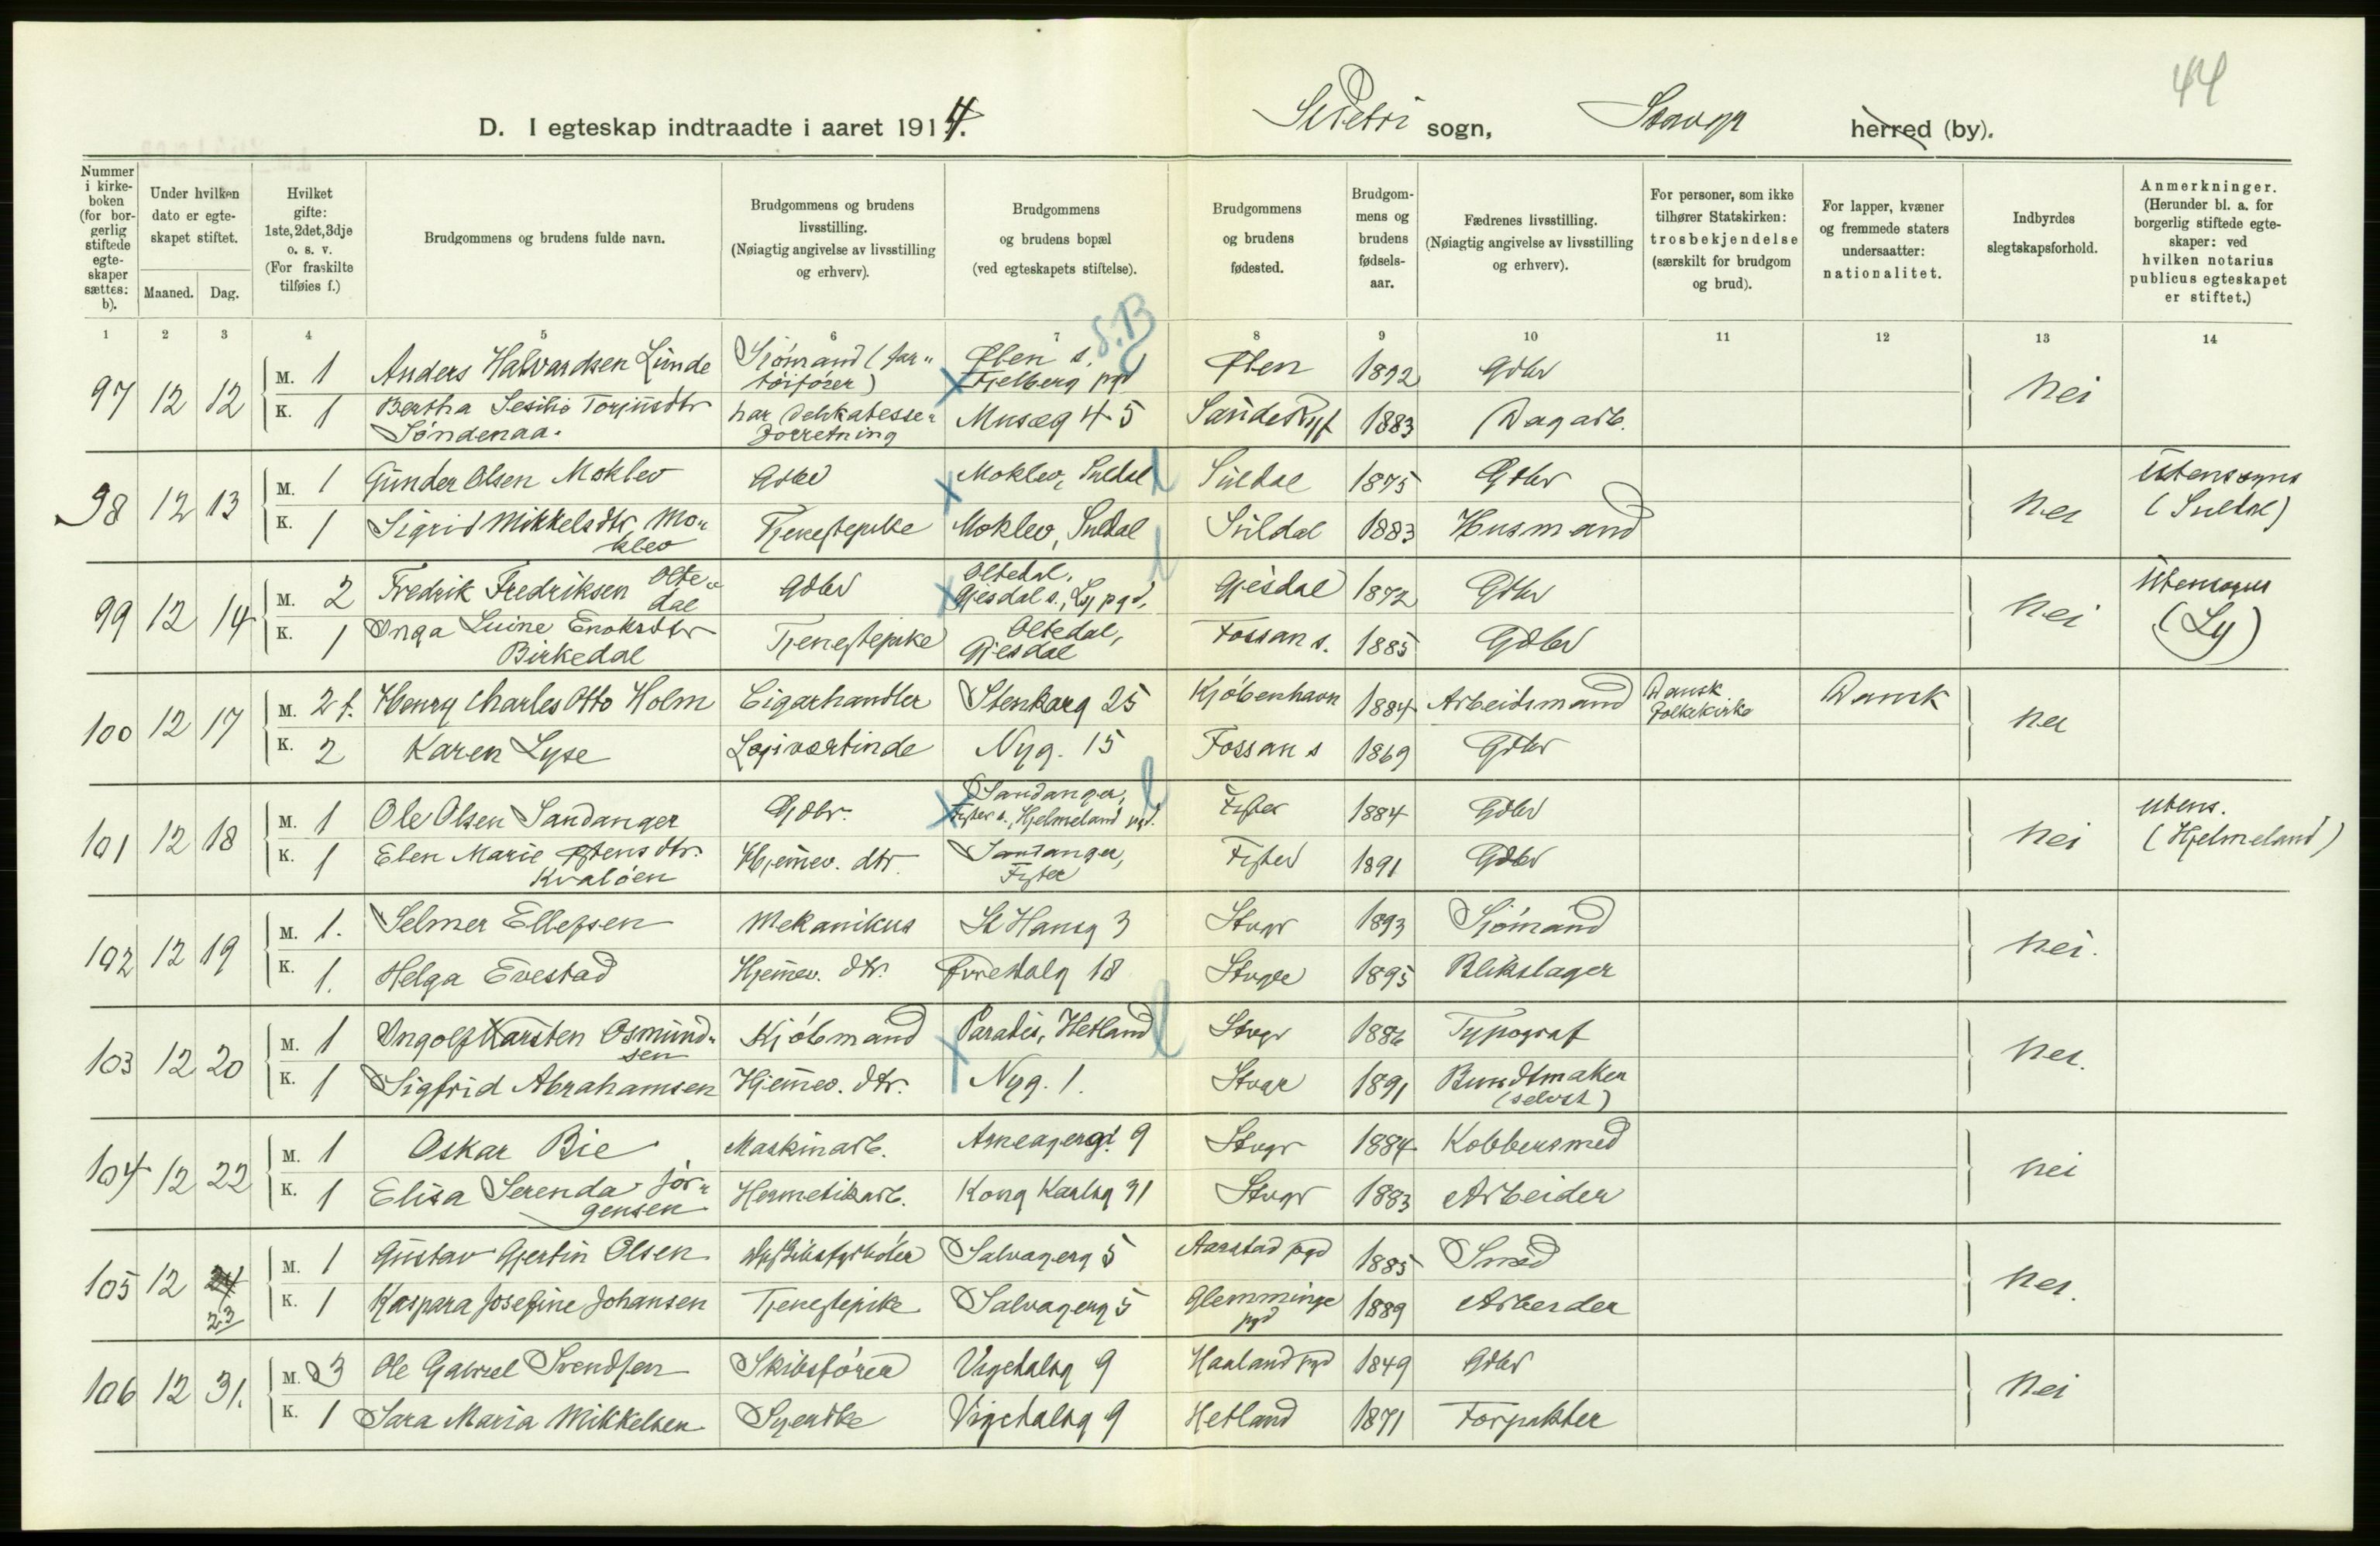 44
D. I egteskap indtraadte i aaret 1914.
St Petri sogn, Stavgr herred (by).
Nummer i kirkeboken (for borgerlig stiftede egteskaper sættes: b).
Under hvilken dato er egteskapet stiftet.
Maaned. Dag.
Hvilket gifte: 1ste, 2det, 3dje o. s. v. (For fraskilte tilføies f.)
Brudgommens og brudens fulde navn.
Brudgommens og brudens livsstilling. (Nøiagtig angivelse av livsstilling og erhverv).
Brudgommens og brudens bopæl (ved egteskapets stiftelse).
Brudgommens og brudens fødested.
Brudgommens og brudens fødselsaar.
Fædrenes livsstilling. (Nøiagtig angivelse av livsstilling og erhverv).
For personer, som ikke tilhører Statskirken: trosbekjendelse (særskilt for brudgom og brud).
For lapper, kvæner og fremmede staters undersaatter: nationalitet.
Indbyrdes slegtskapsforhold.
Anmerkninger. (Herunder bl. a. for borgerlig stiftede egteskaper: ved hvilken notarius publicus egteskapet er stiftet.)
1 2 3 4 5 6 7 8 9 10 11 12 13 14
97 12 12 M. 1 Anders Halvardsen Lunde Sjömand (far„töiförer) Ølen s. Fjelberg pgd Ølen 1892 Gdbr nei
K. 1 Bertha Sesilie Torjusdtr Söndenaa. har Delikatesse„forretning Musæg 45 Sande Ryf 1883 Dagarb.
98 12 13 M. 1 Gunder Olsen Moklev Gdbr Moklev, Suldal Suldal 1875 Gdbr nei Utensogns (Suldal)
K. 1 Sigrid Mikkelsdtr Mo„klev Tjenestepike Moklev, Suldal Suldal 1883 Husmand
99 12 14 M. 2 Fredrik Fredriksen Olte„dal Gdbr Oltedal, Gjesdal s., Ly pgd. Gjesdal 1872 Gdbr nei Utensogns (Ly)
K. 1 Inga Luine Enoksdtr Birkedal Tjenestepike Oltedal, Gjesdal Fossan s. 1885 Gdbr
100 12 17 M. 2 f. Henry Charles Otto Holm Cigarhandler Stenkarg 25 Kjöbenhavn 1884 Arbeidsmand Dansk Folkekirke Dansk nei
K. 2 Karen Lyse Logivertinde Nyg. 15 Fossan s 1869 Gdbr
101 12 18 M. 1 Ole Olsen Sandanger Gdbr. Sandanger, Fister s., Hjelmeland pgd. Fister 1884 Gdbr nei utens. (Hjelmeland)
K. 1 Elen Marie Østensdtr. Kvalöen Hjemmev. dtr. Sandanger, Fister Fister 1891 Gdbr
102 12 19 M. 1. Selmer Ellefsen Mekanikus St Hansg 3 Stvgr 1893 Sjömand nei.
K. 1. Helga Evestad Hjemmev. dtr. Øvrehdalg 18 Stvgr 1895 Blikslager
103 12 20 M. 1 Ingolf Karsten Osmund„sen Kjöbmand Paradis, Hetland Stvgr 1886 Typograf nei.
K. 1 Sigfrid Abrahamsen Hjemmev. dtr. Nyg. 1. Stvgr 1891 Bundtmaker (selvst)
104 12 22 M. 1 Oskar Bie Maskinarb. Arneagergd. 9 Stvgr 1884 Kobbersmed nei
K. 1 Elisa Serenda Jör„gensen Hermetikarb. Kong Karlsg 31 Stvgr 1883 Arbeider
105 12 24 23 M. 1 Gustav Gjertin Olsen Salvagerg 5 Aarstad pgd 1885 Smed nei.
K. 1 Kaspara Josefine Johansen Tjenestepike Salvagerg 5 Glemminge pgd 1889 Arbeider
106 12 31. M. 3 Ole Gabriel Svendsen Skibsförer Vigedalsg 9 Haaland pgd 1849 Gdbr nei
K. 1 Sara Maria Mikkelsen Syerske Vigedalsg 9 Hetland 1871 Forpakter